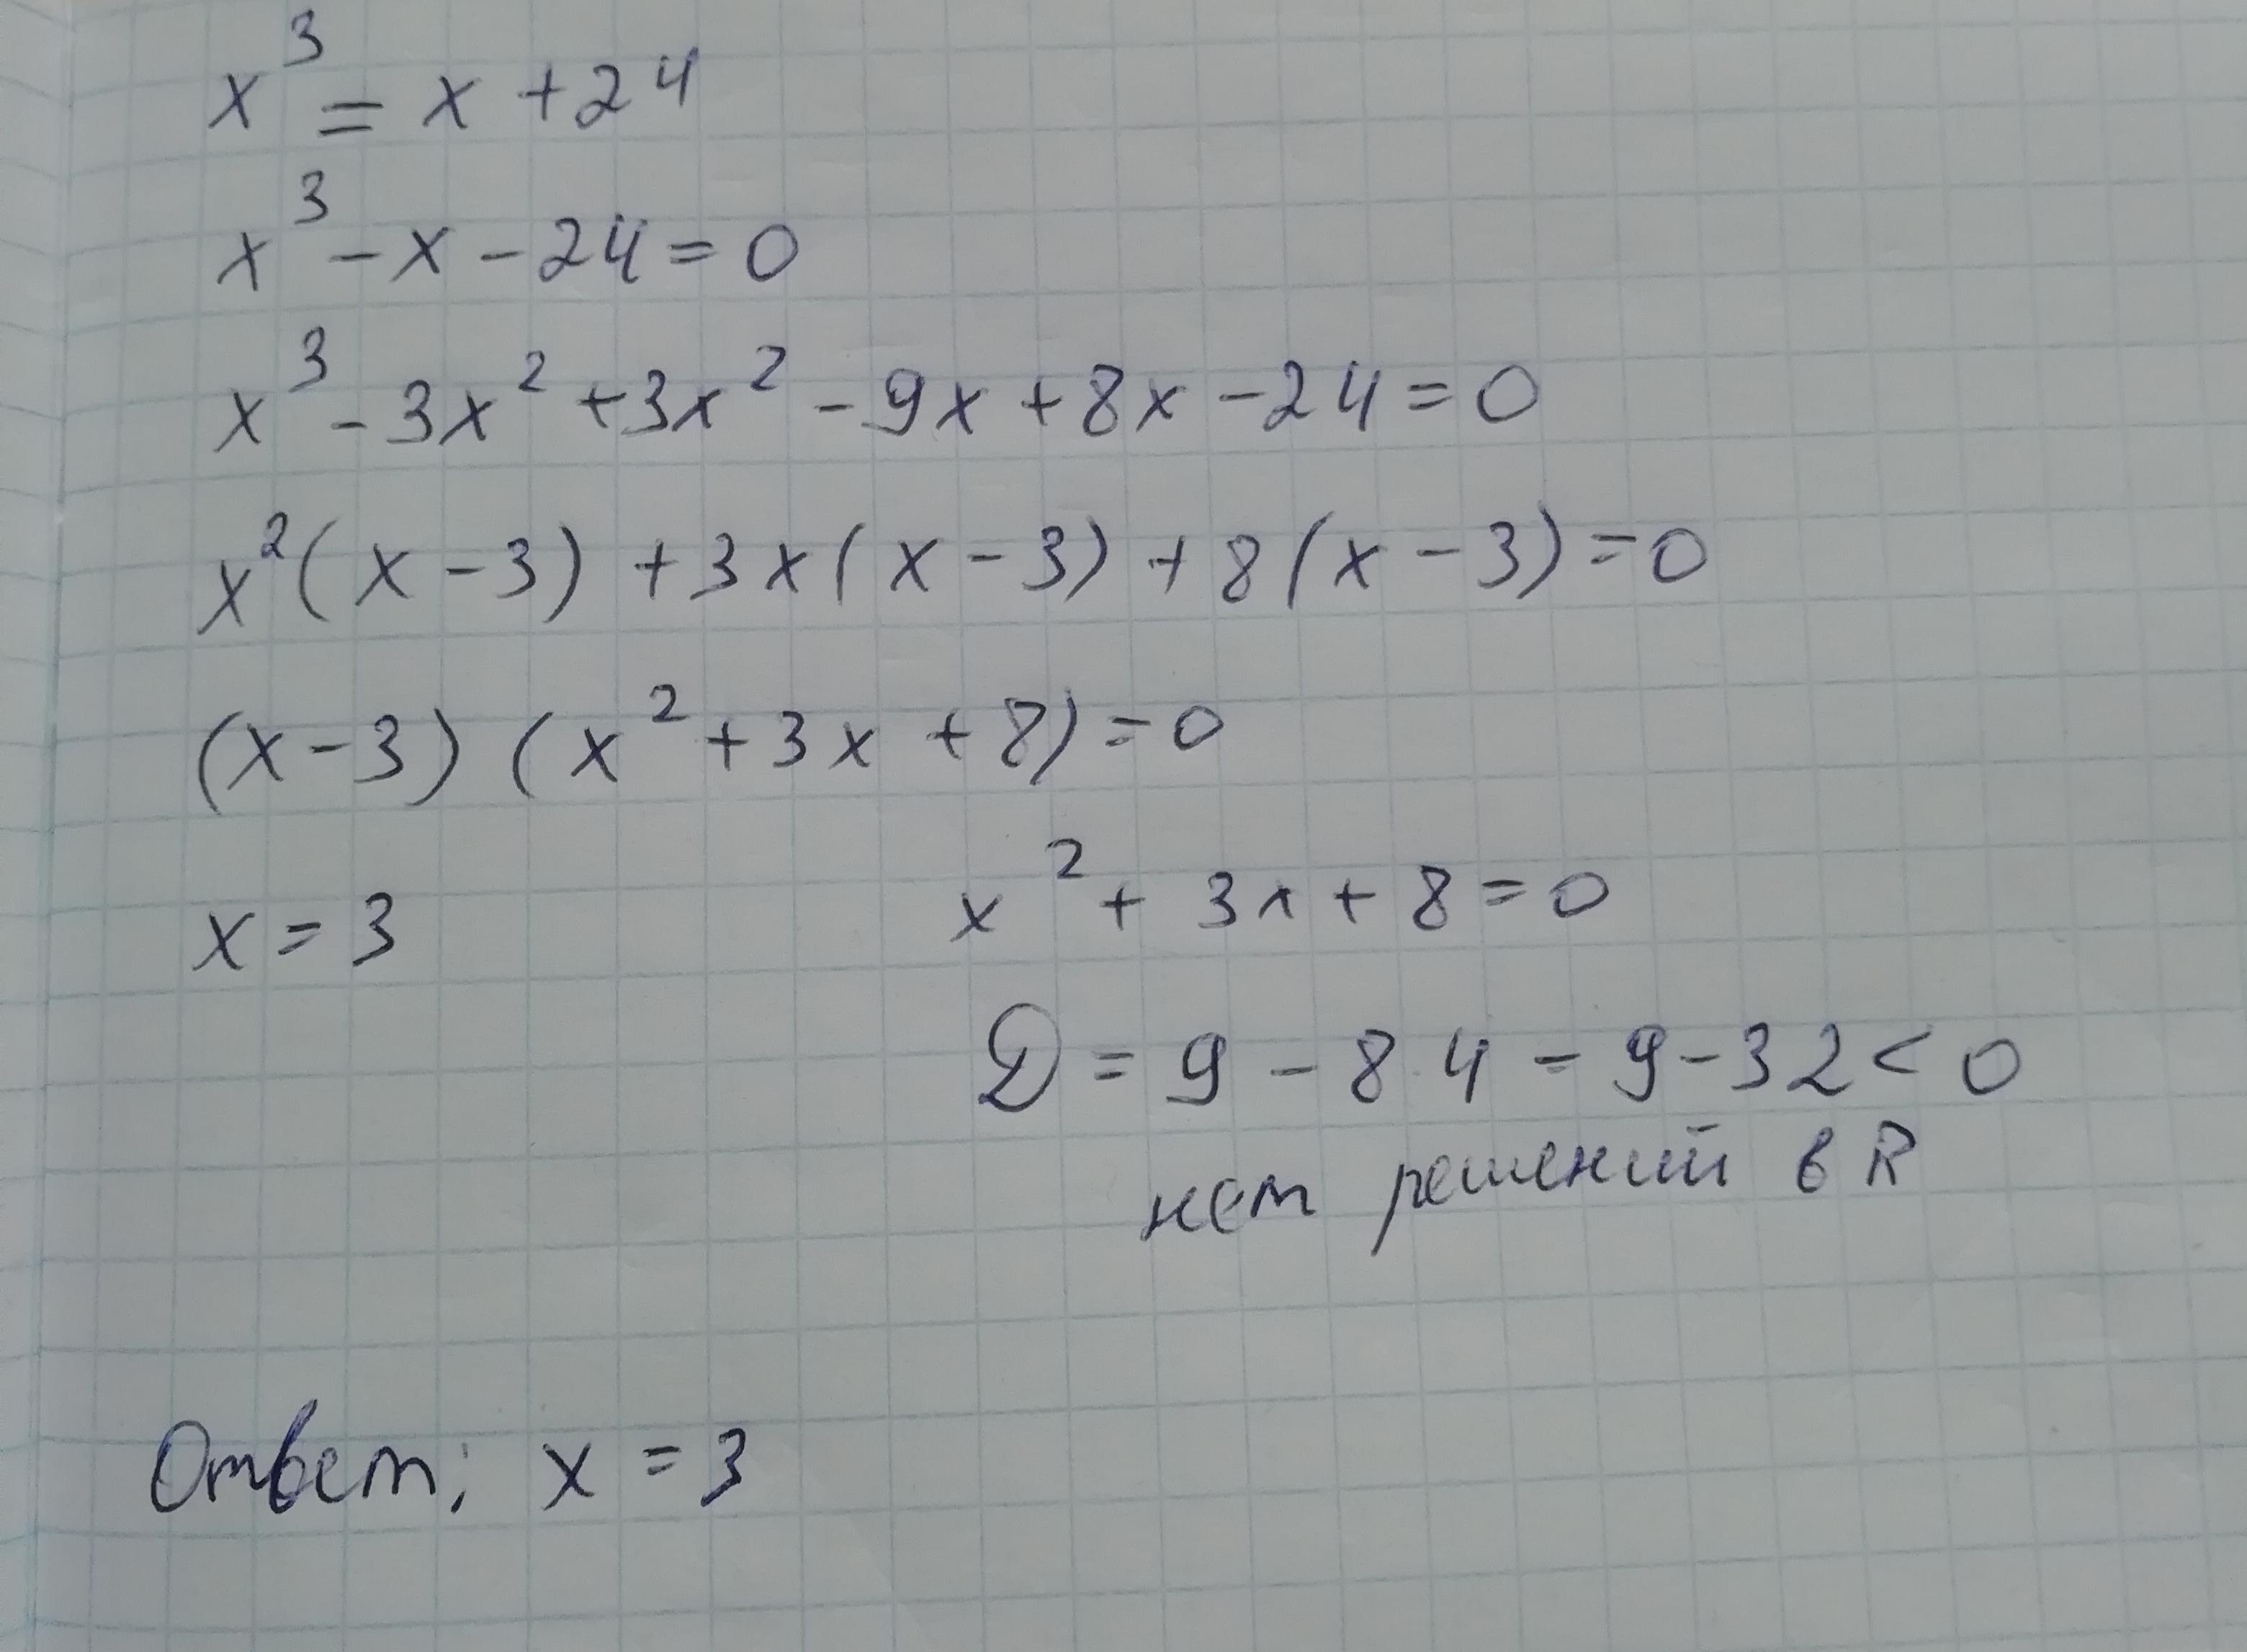 x³ = x + 24
x³ - x - 24 = 0
x³ - 3x² + 3x² - 9x + 8x - 24 = 0
x²(x - 3) + 3x(x - 3) + 8(x - 3) = 0
(x - 3) (x² + 3x + 8) = 0
x = 3 x² + 3x + 8 = 0
D = 9 - 8·4 = 9 - 32 < 0
нет решений в R
Ответ: x = 3